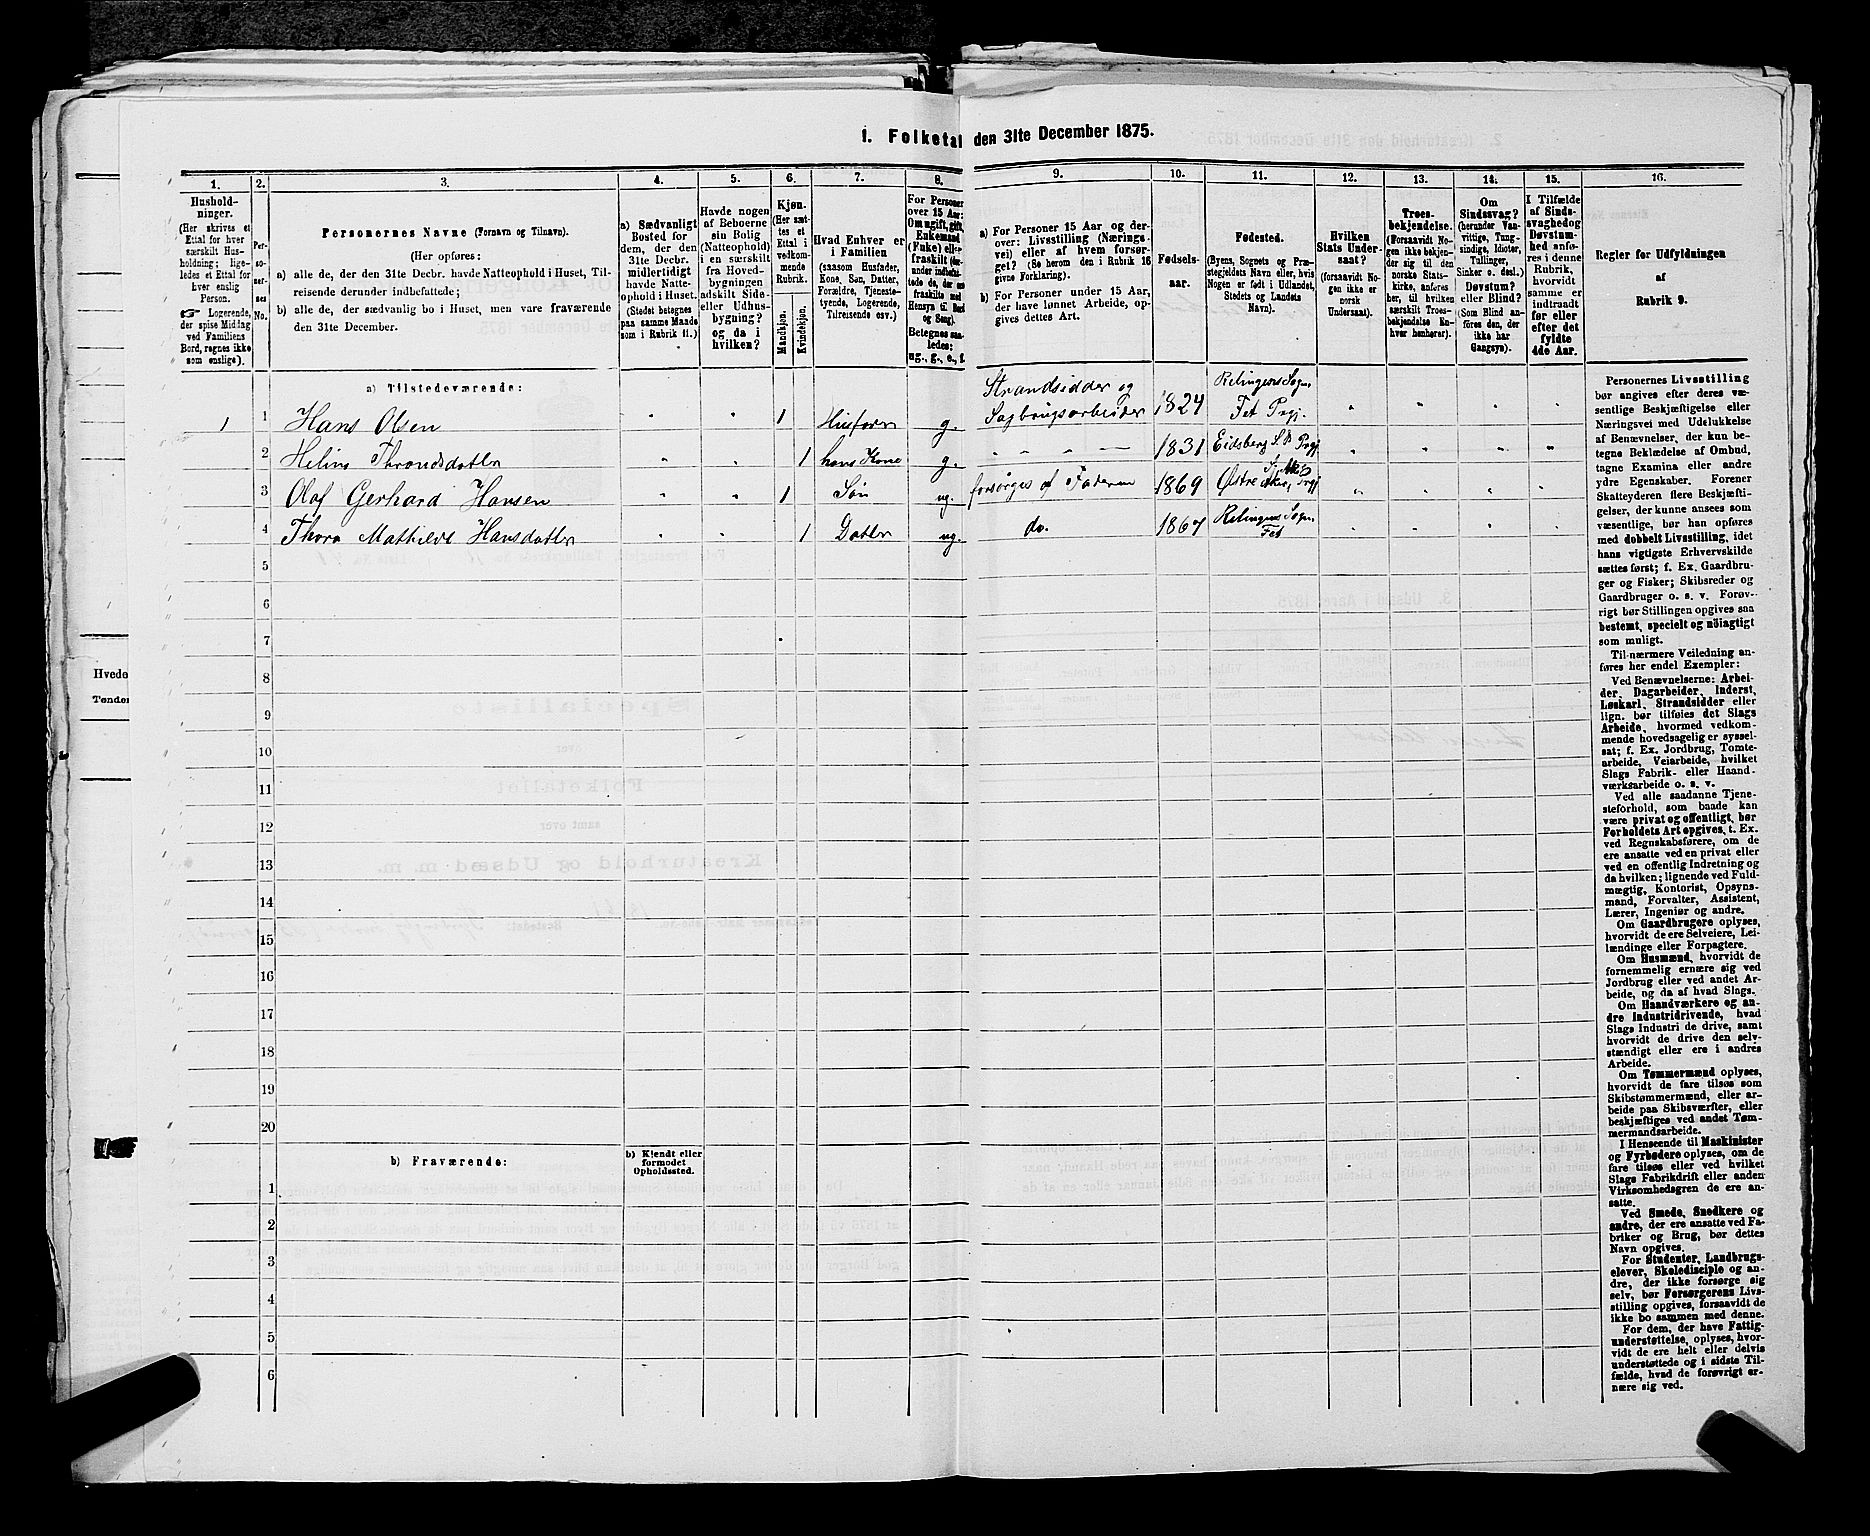 1. Folketal den 31te December 1875.
1. 2. 3. 4. 5. 6. 7. 8. 9. 10. 11. 12. 13. 14. 15. 16.
Hushold-
ninger.
(Her skrives et
Ettal for hver
særskilt Hus-
holdning; lige-
ledes et Ettal for
hver enslig
Person.
Logerende,
der spise Middag
ved Familiens
Bord, regnes ikke
som enslige).
Per-
so-
ner-
nes
No.
Personernes Navne (Fornavn og Tilnavn).
(Her opføres:
a) alle de, der den 31te Decbr. havde Natteophold i Huset, Til-
reisende derunder indbefattede;
b) alle de, der sædvanlig bo i Huset, men vare fraværende
den 31te December.
a) Sædvanligt
Bosted for
dem, der den
31te Decbr.
midlertidigt
havde Natte-
ophold i Huset.
(Stedet betegnes
paa samme Maade
som i Rubrik 11.)
Havde nogen
af Beboerne
sin Bolig
(Natteophold)
i en særskilt
fra Hoved-
bygningen
adskilt Side-
eller Udhus-
bygning?
og da i
hvilken?
Kjøn.
(Her sæt-
tes et
Ettal i
vedkom-
mende
Rubrik.
Mandkjøn.
Kvindekjøn.
Hvad Enhver er
i Familien
(saasom Husfader,
Kone, Søn, Datter,
Forældre, Tjeneste-
tyende, Logerende,
Tilreisende osv.)
For Personer
over 15 Aar:
Om ugift, gift,
Enkemand
(Enke) eller
fraskilt
Betegnes saa-
ledes:
ug., g., e., f.
a) For Personer 15 Aar og der-
over: Livsstilling (Nærings-
vei) eller af hvem forsør-
get? (Se herom den i Rubrik 16
givne Forklaring).
b) For Personer under 15 Aar,
der have lønnet Arbeide, op-
gives dettes Art.
Fødsels-
aar.
Fødested.
(Byens, Sognets og Præ-
stegjeldets Navn eller, hvis
Nogen er født i Udlandet,
Stedets og Landets
Navn).
Hvilken
Stats Under-
saat?
(forsaavidt No-
gen ikke er
norsk
Undersaat).
Troes-
bekjendelse.
(Forsaavidt No-
gen ikke bekjen-
der sig til den
norske Stats-
kirke, anføres
her, til hvilken
særskilt Troes-
bekjendelse En-
hver henhører).
Om
Sindssvag?
(herunder Van-
vittige, Tung-
sindige, Idioter,
Tullinger,
Sinker o. desl.)
Døvstum?
eller Blind?
(Som Blind an-
føres den, der
ikke har
Gangsyn).
I Tilfælde
af Sinds-
svaghed og
Døvstum-
hed anfø-
res i denne
Rubrik,
hvorvidt
samme er
indtraadt
før eller
efter det
fyldte
4de Aar.
Regler for Udfyldningen
af
Rubrik 9.
a) Tilstedeværende:
1 1 Hans Olsen " " 1 Husfader g. Strandsidder og Sagbrugsarbeider 1824 Relingens Sogn, Fet Prgj. " " " "
2 Helina Throndsdatter " " 1 hans Kone g. " " " — 1831 Eidsberg S. & Prgj " " " "
3 Olaf Gerhard Hansen " " 1 Søn ug. forsørges af Faderen 1869 Østre Aker, Prgj " " " "
4 Thora Mathilde Hansdatter " " 1 Datter ug. do. 1867 Relingens Sogn, Fet " " " "
5
6
7
8
9
10
11
12
13
14
15
16
17
18
19
20
b) Fraværende:
b) Kjendt eller
formodet
Opholdssted.
1
2
3
4
5
6
Personernes Livsstilling
bør angives efter deres væ-
sentlige Beskjæftigelse eller
Næringsvei med Udelukkelse
af Benævnelser, der kun be-
tegne Beklædelse af Ombud,
tagne Examina eller andre
ydre Egenskaber. Forener
Skatteyderen flere Beskjæfti-
gelser, der kunne ansees som
væsentlige, bør han opføres
med dobbelt Livsstilling, idet
hans vigtigste Erhvervskilde
sættes først; f. Ex. Gaardbru-
ger og Fisker; Skibsreder og
Gaardbruger o. s. v. Forøv-
rigt bør Stillingen opgives saa
bestemt, specielt og nöiagtigt
som muligt.
Til nærmere Veiledning an-
føres her endel Exempler:
Ved Benævnelserne: Arbei-
der, Dagarbeider, Inderst,
Løskarl, Strandsidder eller
lign. bør tilføies det Slags
Arbeide, hvormed vedkom-
mende hovedsagelig er syssel-
sat; f. Ex. Jordbrug, Tomte-
arbeide, Veiarbeide, hvilket
Slags Fabrik- eller Haand-
værksarbeide o. s. v.
Ved alle saadanne Tjene-
steforhold, som baade kan
være privat og offentligt, bør
Forholdets Art opgives, t. Ex.
ved Regnskabsførere, om de
ere ansatte ved en privat eller
ved en offentlig Indretning og
da hvilken; lignende ved Fuld-
mægtig, Kontorist, Opsyns-
mand, Forvalter, Assistent,
Lærer, Ingeniør og andre.
Om Gaardbrugere oplyses,
hvorvidt de ere Selveiere, Lei-
lændinge eller Forpagtere.
Om Husmænd, hvorvidt de
fornemmelig ernære sig ved
Jordbrug eller ved andet Ar-
beide, og da af hvad Slags.
Om Haandværkere og an-
dre Industridrivende, hvad
Slags Industri de drive, samt
hvorvidt de drive den selv-
stændigt eller ere i andres
Arbeide.
Om Tømmermænd oplyses,
hvorvidt de fare tilsøs som
Skibstømmermænd, eller ar-
beide paa Skibsværfter, eller
beskjæftiges ved andet Tøm-
mermandsarbeide.
I Henseende til Maskinister
og Fyrbødere oplyses, om de
fare tilsøs eller ved hvilket
Slags Fabrikdrift eller anden
Virksomhedsgren de ere an-
satte.
Ved Smede, Snedkere og
andre, der ere ansatte ved Fa-
briker og Brug, bør dettes
Navn opgives.
For Studenter, Landbrugs-
elever, Skoledisciple og an-
dre, der ikke forsørge sig
selv, bør Forsørgerens Livs-
stilling opgives, forsaavidt de
ikke bo sammen med denne.
For dem, der have Fattig-
understøttelse, oplyses, hvor-
vidt de ere helt eller delvis
understøttede og i sidste Til-
fælde, hvad de forøvrigt er-
nære sig ved.
Hvede
Tønder